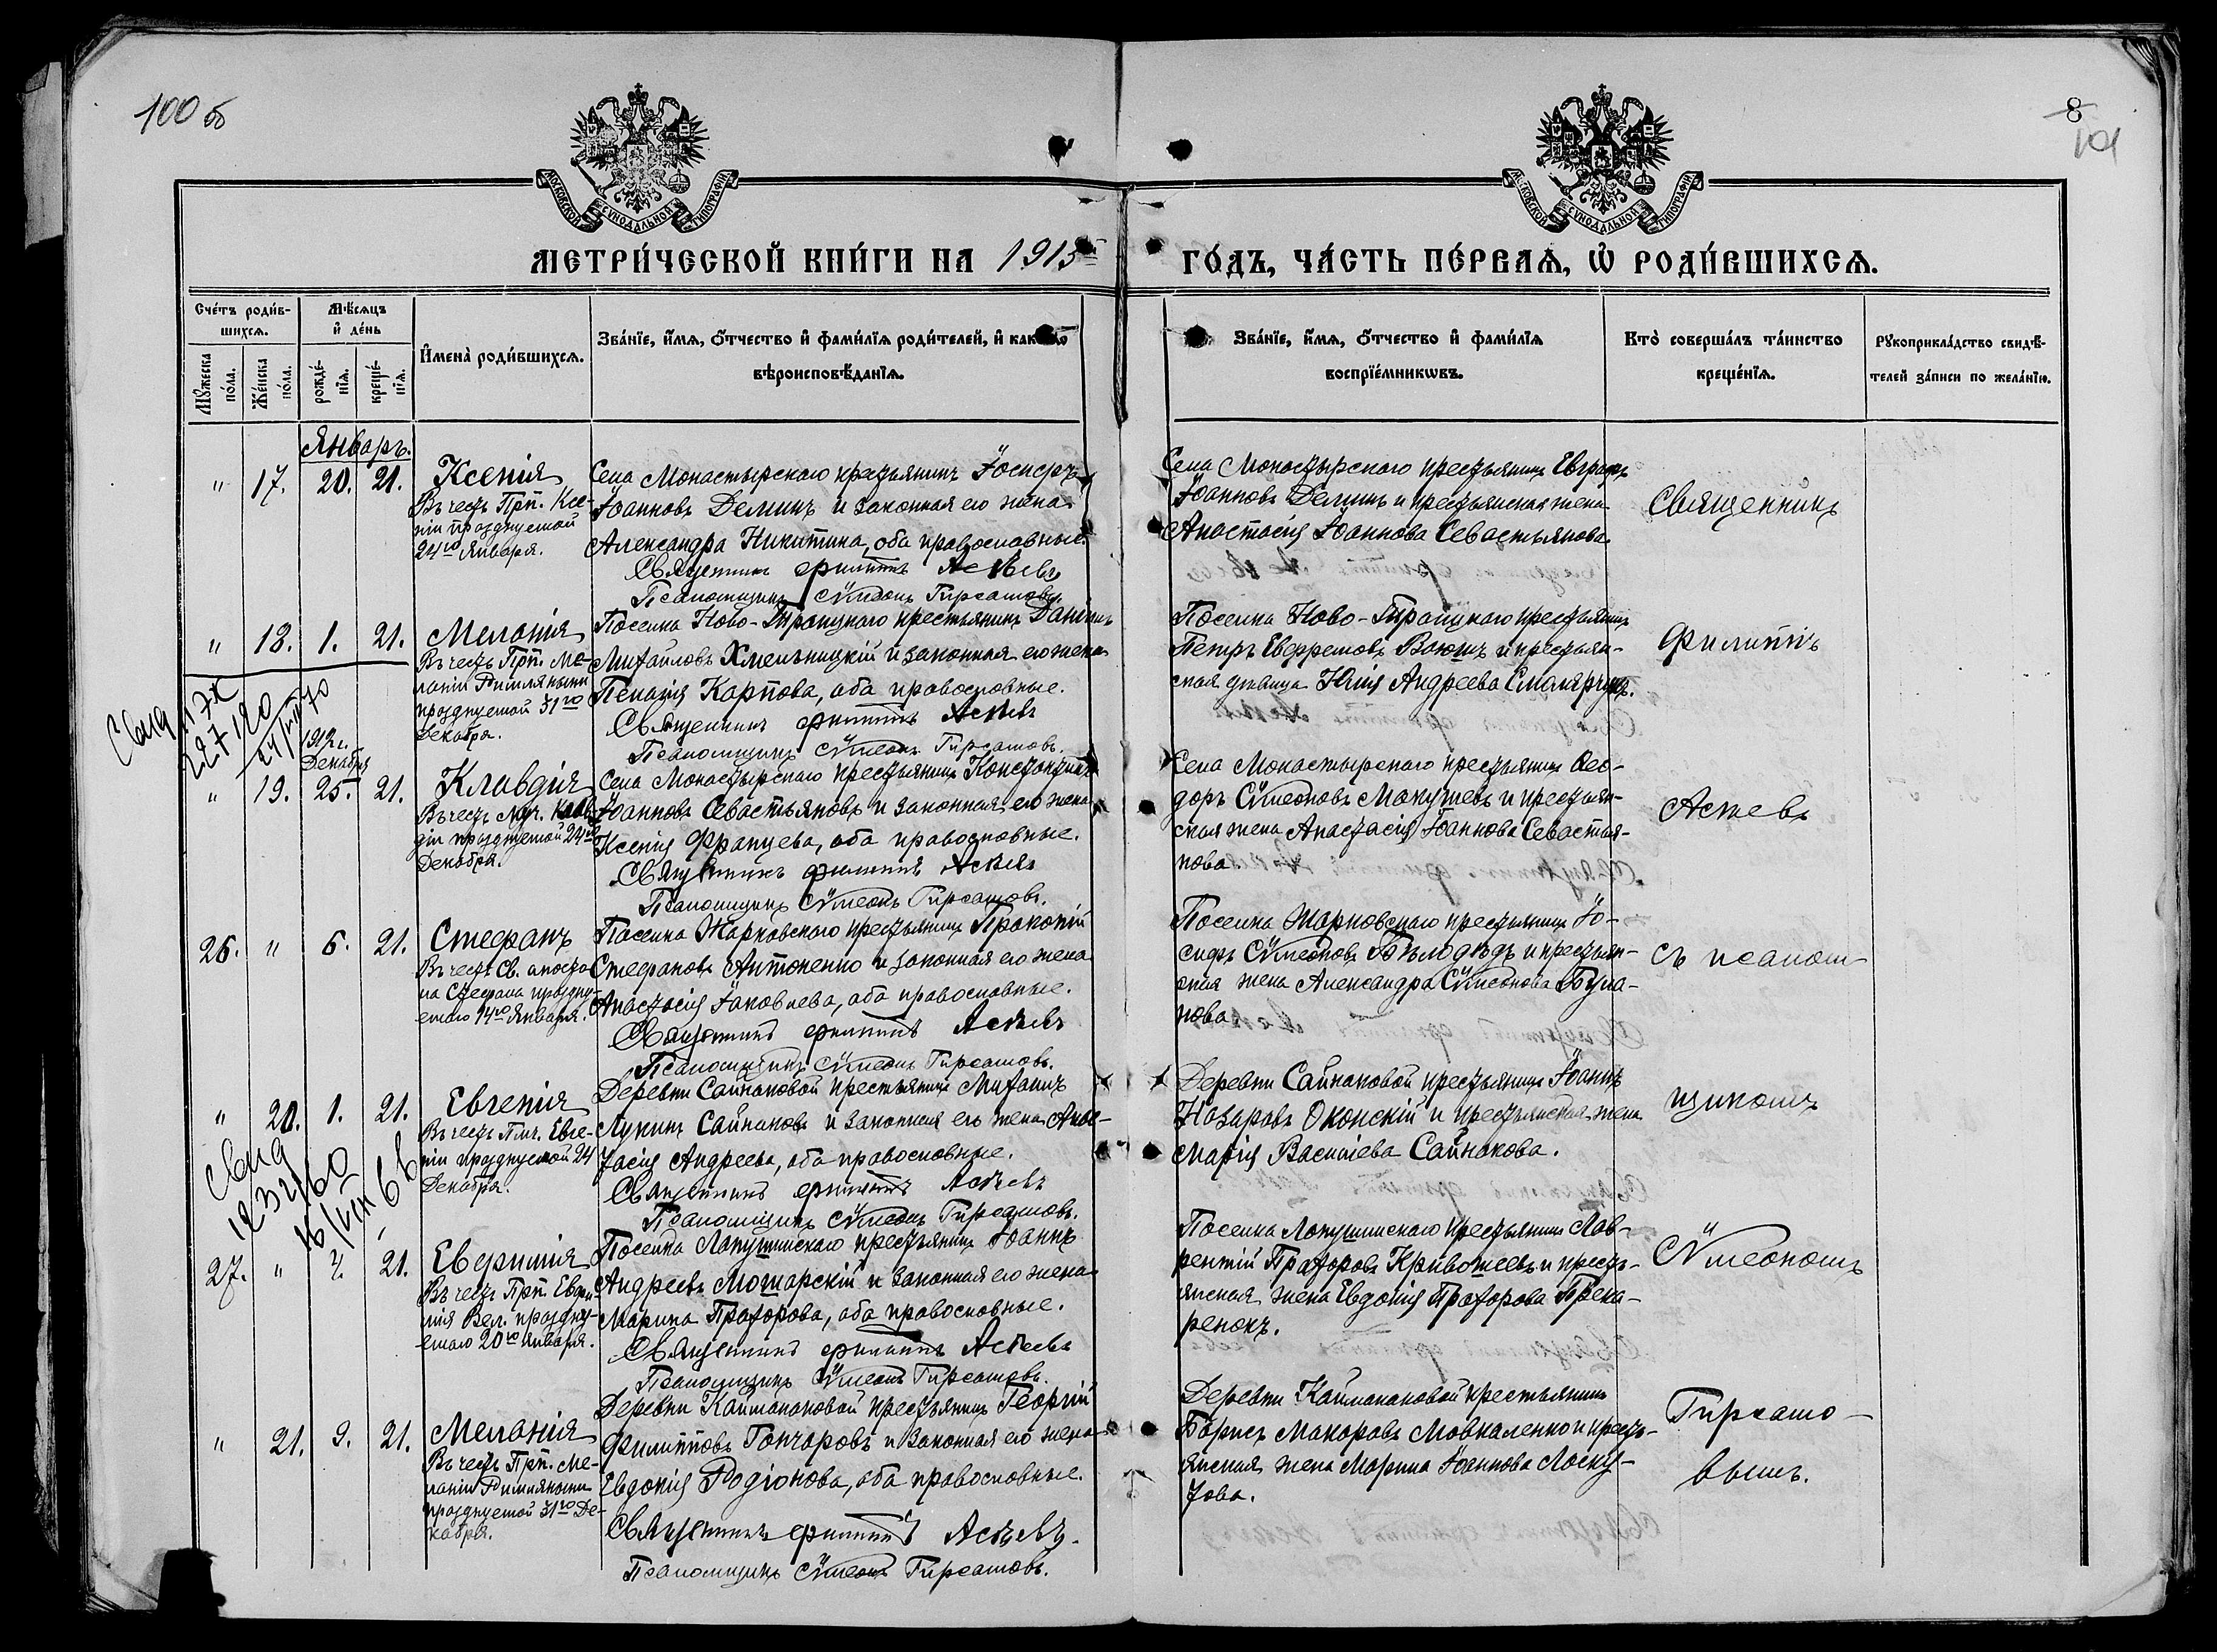 100 об
8
101
МОСКОВСКОЙ СѴНОДАЛЬНОЙ ТИПОГРАФІИ
МОСКОВСКОЙ СѴНОДАЛЬНОЙ ТИПОГРАФІИ
МЕТРИ́ЧЕСКОЙ КНИ́ГИ НА 1913
ГО́ДЪ, ЧА́СТЬ ПЕ́РВАѦ, Ѡ҆ РОДИ́ВШИХСѦ.
Сче́тъ роди́в-
шихсѧ.
Мѣ́сѧцъ
и҆ де́нь
Мꙋ́жеска
по́ла.
Же́нска
по́ла.
рожде́-
нїѧ.
креще́-
нїѧ.
И҆мена̀ роди́вшихсѧ.
Зва́нїе, и҆́мѧ, о҆́тчество и҆ фами́лїѧ роди́телей, и҆ како́гѡ
вѣроисповѣ́данїѧ.
Зва́нїе, и҆́мѧ, о҆́тчество и҆ фами́лїѧ
воспрїе́мникѡвъ.
Кто̀ соверша́лъ та́инство
креще́нїѧ.
Рꙋкоприкла́дство свидѣ́-
телей за́писи по жела́нїю.
Январь.
" 17. 20. 21. Ксенія
Въ честь Прп. Ксе-
ніи празднуемой
24го Января.
Села Монастырскаго крестьянинъ Іосифъ
Іоанновъ Деминъ и законная его жена
Александра Никитина, оба православные.
Священникъ Филиппъ Асѣевъ
Псаломщикъ Сѵмеонъ Тирсатовъ.
Села Монастырскаго крестьянинъ Евграфъ
Іоанновъ Деминъ и крестьянская жена
Анастасія Іоаннова Севастьянова.
Священникъ
" 18. 1. 21. Меланія
Въ честь Прп. Ме-
ланіи Римляныни
празднуемой 31го
Декабря.
Поселка Ново-Троицкаго крестьянинъ Даніилъ
Михайловъ Хмельницкій и законная его жена
Пелагія Карпова, оба православные.
Священникъ Филиппъ Асѣевъ
Псаломщикъ Сѵмеонъ Тирсатовъ.
Поселка Ново-Троицкаго крестьянинъ
Петръ Евфремовъ Воюшъ и крестьян-
ская дѣвица Юлія Андреева
Филиппъ
1912 г.
Декабря
" 19. 25. 21. Клавдія
Въ честь муч. Клав-
діи празднуемой 24го
Декабря.
Села Монастырскаго крестьянинъ Константинъ
Іоанновъ Севастьяновъ и законная его жена
Ксенія Францева, оба православные.
Священникъ Филиппъ Асѣевъ
Псаломщикъ Сѵмеонъ Тирсатовъ.
Села Монастырскаго крестьянинъ Ѳео-
доръ Сѵмеоновъ Макушевъ и крестьян-
ская жена Анастасія Іоаннова Севастья-
нова.
Асѣевъ
26. " 5. 21. Стефанъ
Въ честь Св. апосто-
ла Стефана праздну-
емаго 14го Января.
Поселка Жарковскаго крестьянинъ Прокопій
Стефановъ Антоненко и законная его жена
Анастасія Іаковлева, оба православные.
Священникъ Филиппъ Асѣевъ
Псаломщикъ Сѵмеонъ Тирсатовъ.
Поселка Жарковскаго крестьянинъ Іо-
сифъ Сѵмеоновъ Бѣлодѣдъ и крестьян-
ская жена Александра Сѵмеонова Була-
нова.
съ псалом-
" 20. 1. 21. Евгенія
Въ честь Пмч. Евге-
ніи празднуемой 24
Декабря.
Деревни Сайнаковой крестьянинъ Михаилъ
Лукинъ Сайнаковъ и законная его жена Анас-
тасія Андреева, оба православные.
Священникъ Филиппъ Асѣевъ
Псаломщикъ Сѵмеонъ Тирсатовъ.
Деревни Сайнаковой крестьянинъ Іоаннъ
Назаровъ Оконскій и крестьянская жена
Марія Василіева Сайнакова.
щикомъ
27. " 21. Евфимія
Въ честь Прп. Евфи-
мія Вел. праздну-
емаго 20го Января.
Поселка Лапушинскаго крестьянинъ Іоаннъ
Андреевъ Мошарскій и законная его жена
Марина Прохорова, оба православные.
Священникъ Филиппъ Асѣевъ
Псаломщикъ Сѵмеонъ Тирсатовъ.
Поселка Лапушинскаго крестьянинъ Лав-
рентій Прохоровъ Кривошеевъ и кресть-
янская жена Евдокія Прохорова
Сѵмеономъ
" 21. 9. 21. Меланія
Въ честь Прп. Ме-
ланіи Римляныни
празднуемой 31го Де-
кабря.
Деревни Кайманаковой крестьянинъ Георгій
Филипповъ Гончаровъ и законная его жена
Евдокія Родіонова, оба православные.
Священникъ Филиппъ Асѣевъ.
Псаломщикъ Сѵмеонъ Тирсатовъ.
Деревни Кайманаковой крестьянинъ
Борисъ Макаровъ Мовналенко и кресть-
янская жена Марина Іоаннова Лоску-
това.
Тирсато-
вымъ.